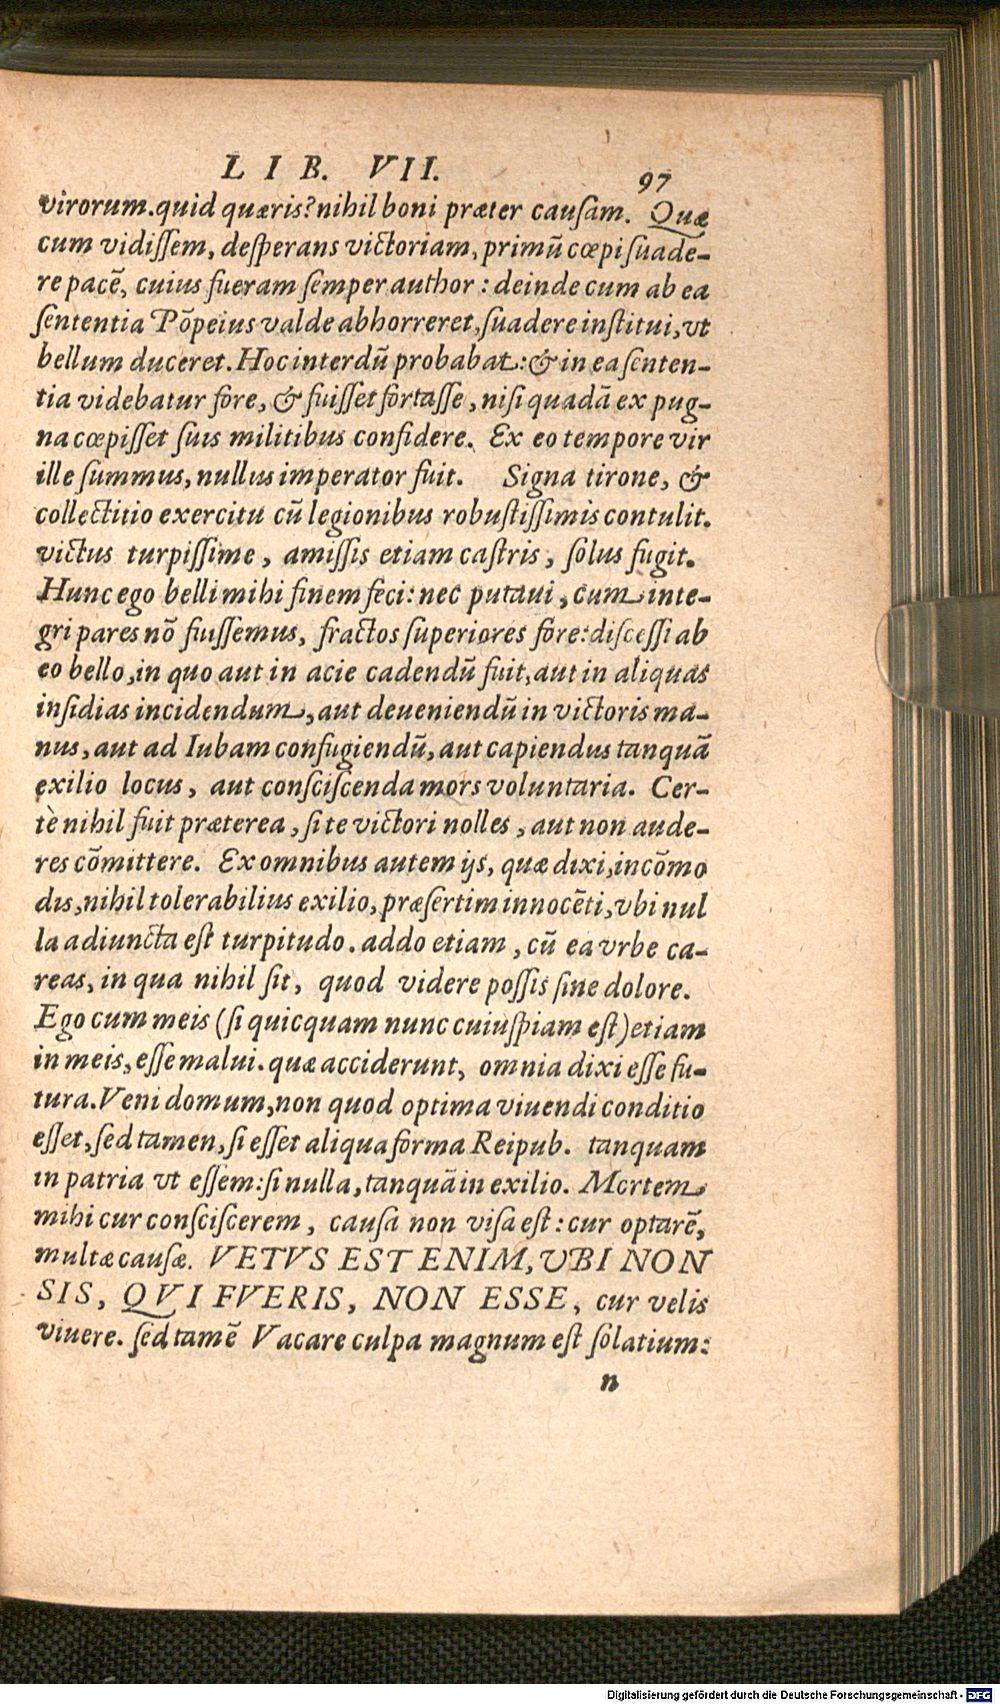 LIB. VII. 97
virorum.quid quæris?nihil boni præter cauſam. Quæ
cum vidiſſem, deſperans victoriam, primũ cœpi ſuade-
re pacẽ, cuius fueram ſemper author : deinde cum ab ea
ſententia Põpeius valde abhorreret, ſuadere inſtitui, vt
bellum duceret. Hoc interdũ probabat: & in ea ſenten-
tia videbatur fore, & fuiſſet fortaſſe, niſi quadã ex pug-
na cœpiſſet ſuis militibus confidere. Ex eo tempore vir
ille ſummus, nullus imperator fuit. Signa tirone, &
collectitio exercitu cũ legionibus robuſtiſſimis contulit.
victus turpiſſime, amiſſis etiam caſtris, ſolus fugit.
Hunc ego belli mihi finem feci: nec putaui, cum inte-
gri pares nõ fuiſſemus, fractos ſuperiores fore: diſceſſi ab
eo bello, in quo aut in acie cadendũ fuit, aut in aliquas
inſidias incidendum, aut deueniendũ in victoris ma-
nus, aut ad Iubam confugiendũ, aut capiendus tanquã
exilio locus, aut conſciſcenda mors voluntaria. Cer-
tè nihil fuit præterea, ſi te victori nolles, aut non aude-
res cõmittere. Ex omnibus autem ijs, quæ dixi, incõmo
dis, nihil tolerabilius exilio, præſertim innocẽti, vbi nul
la adiuncta eſt turpitudo. addo etiam, cũ ea vrbe ca-
reas, in qua nihil ſit, quod videre poſſis ſine dolore.
Ego cum meis (ſi quicquam nunc cuiuſpiam eſt) etiam
in meis, eſſe malui. quæ acciderunt, omnia dixi eſſe fu-
tura. Veni domum, non quod optima viuendi conditio
eſſet, ſed tamen, ſi eſſet aliqua forma Reipub. tanquam
in patria vt eſſem: ſi nulla, tanquã in exilio. Mortem
mihi cur conſciſcerem, cauſa non viſa eſt: cur optarẽ,
multæ cauſæ. VETVS EST ENIM, VBI NON
SIS, QVI FVERIS, NON ESSE, cur velis
viuere. ſed tamẽ Vacare culpa magnum eſt ſolatium:
n
Digitalisierung gefördert durch die Deutsche Forschungsgemeinschaft - DFG